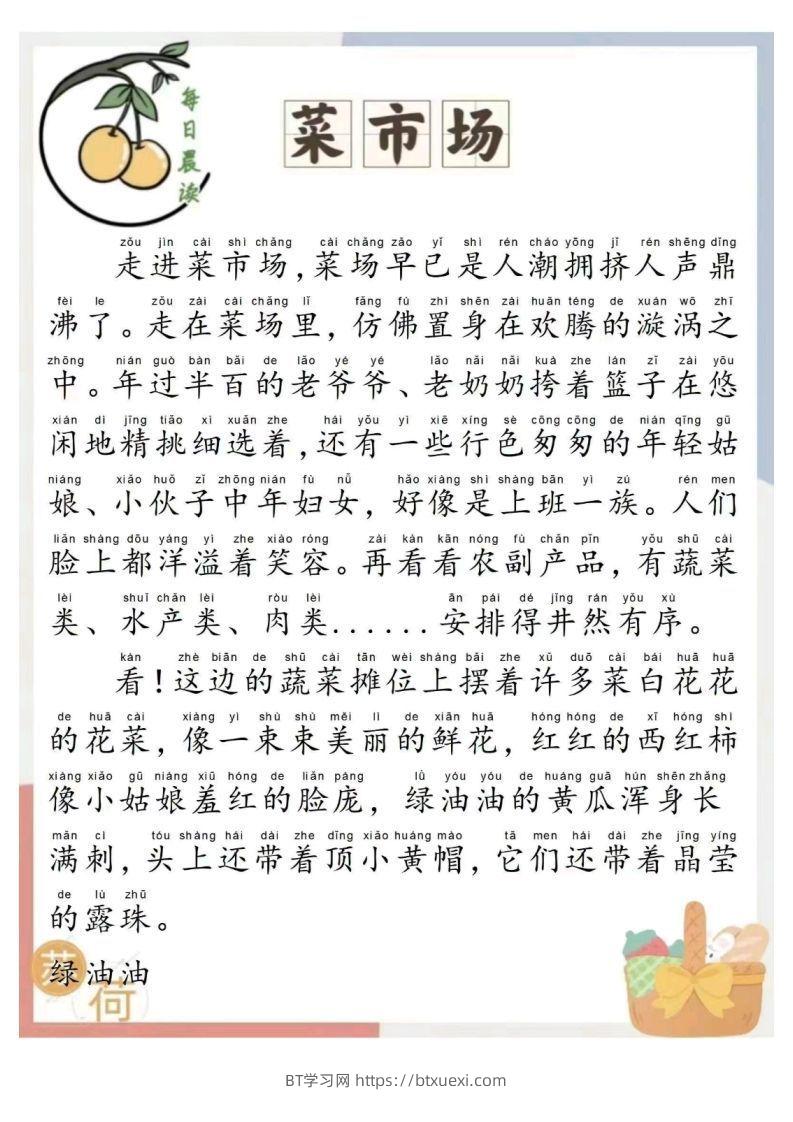 每日晨读
菜市场
zǒu jìn cài shì chǎng cài chǎng zǎo yǐ shì rén cháo yōng jǐ rén shēng dǐng
走进菜市场,菜场早已是人潮拥挤人声鼎
fèi le zǒu zài cài chǎng lǐ fǎng fú zhì shēn zài huān téng de xuán wō zhī
沸了。走在菜场里,仿佛置身在欢腾的漩涡之
zhōng nián guò bàn bǎi de lǎo yé yé lǎo nǎi nǎi kuà zhe lán zǐ zài yōu
中。年过半百的老爷爷、老奶奶挎着篮子在悠
xián dì jīng tiāo xì xuǎn zhe hái yǒu yì xiē xíng sè cōng cōng de nián qīng gū
闲地精挑细选着,还有一些行色匆匆的年轻姑
niáng xiǎo huǒ zǐ zhōng nián fù nǚ hǎo xiàng shì shàng bān yì zú rén men
娘、小伙子中年妇女,好像是上班一族。人们
liǎn shàng dōu yáng yì zhe xiào róng zài kàn kān nóng fù chǎn pǐn yǒu shū cài
脸上都洋溢着笑容。再看看农副产品,有蔬菜
lèi shuǐ chǎn lèi ròu lèi ān pái dé jǐng rán yǒu xù
类、水产类、肉类......安排得井然有序。
kàn zhè biān de shū cài tān wèi shàng bǎi zhe xǔ duō cài bái huā huā
看!这边的蔬菜摊位上摆着许多菜白花花
de huā cài xiàng yì shù shù měi lì de xiān huā hóng hóng de xī hóng shì
的花菜,像一束束美丽的鲜花,红红的西红柿
xiàng xiǎo gū niáng xiū hóng de liǎn páng lǜ yóu yóu de huáng guā hún shēn zhǎng
像小姑娘羞红的脸庞,绿油油的黄瓜浑身长
mǎn cì tóu shàng hái dài zhe dǐng xiǎo huáng mào tā men hái dài zhe jīng yíng
满刺,头上还带着顶小黄帽,它们还带着晶莹
de lù zhū
的露珠。
绿油油
荷
BT学习网 https://btxuexi.com